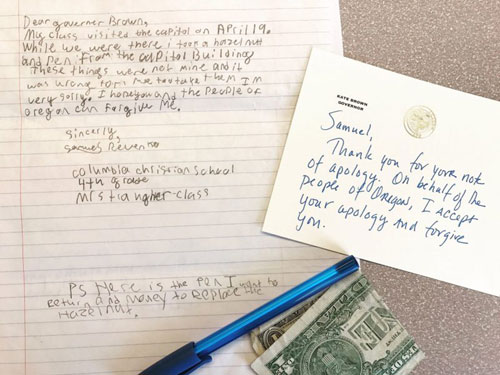 Dear governer Brown,
My class visited the capitol on April 19.
While we were there i took a hazel nut
and pen from the capitol Building
These things were not mine and it
was wrong form me too take them I'm
very sorry. I hope you and the people of
oregon can forgive me.
sincerly,
samuel
columbia christian school
4th grade
class
Ps Here is the pen I want to
return and money to replace the
Hazelnut.
KATE BROWN
GOVERNOR
Samuel,
Thank you for your note
of apology. On behalf of the
people of Oregon, I accept
your apology and forgive
you.
ONE